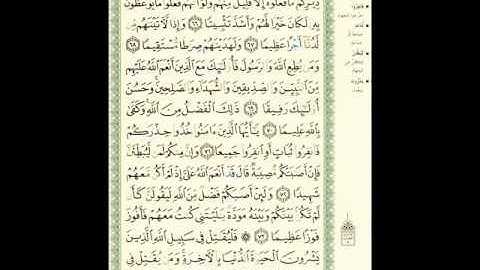 دِيَٰرِكُم مَّا فَعَلُوهُ إِلَّا قَلِيلٌ مِّنْهُمْ وَلَوْ أَنَّهُمْ فَعَلُوا۟ مَا يُوعَظُونَ
بِهِۦ لَكَانَ خَيْرًا لَّهُمْ وَأَشَدَّ تَثْبِيتًا ٦٦ وَإِذًا لَّأٓتَيْنَٰهُم مِّن
لَّدُنَّآ أَجْرًا عَظِيمًا ٦٧ وَلَهَدَيْنَٰهُمْ صِرَٰطًا مُّسْتَقِيمًا ٦٨
وَمَن يُطِعِ ٱللَّهَ وَٱلرَّسُولَ فَأُو۟لَٰٓئِكَ مَعَ ٱلَّذِينَ أَنْعَمَ ٱللَّهُ عَلَيْهِم
مِّنَ ٱلنَّبِيِّـۧنَ وَٱلصِّدِّيقِينَ وَٱلشُّهَدَآءِ وَٱلصَّٰلِحِينَ وَحَسُنَ
أُو۟لَٰٓئِكَ رَفِيقًا ٦٩ ذَٰلِكَ ٱلْفَضْلُ مِنَ ٱللَّهِ وَكَفَىٰ
بِٱللَّهِ عَلِيمًا ٧٠ يَٰٓأَيُّهَا ٱلَّذِينَ ءَامَنُوا۟ خُذُوا۟ حِذْرَكُمْ
فَٱنفِرُوا۟ ثُبَاتٍ أَوِ ٱنفِرُوا۟ جَمِيعًا ٧١ وَإِنَّ مِنكُمْ لَمَن لَّيُبَطِّئَنَّ
فَإِنْ أَصَٰبَتْكُم مُّصِيبَةٌ قَالَ قَدْ أَنْعَمَ ٱللَّهُ عَلَىَّ إِذْ لَمْ أَكُن مَّعَهُمْ
شَهِيدًا ٧٢ وَلَئِنْ أَصَٰبَكُمْ فَضْلٌ مِّنَ ٱللَّهِ لَيَقُولَنَّ كَأَن
لَّمْ تَكُنۢ بَيْنَكُمْ وَبَيْنَهُۥ مَوَدَّةٌ يَٰلَيْتَنِى كُنتُ مَعَهُمْ فَأَفُوزَ
فَوْزًا عَظِيمًا ٧٣ ۞ فَلْيُقَٰتِلْ فِى سَبِيلِ ٱللَّهِ ٱلَّذِينَ
يَشْرُونَ ٱلْحَيَوٰةَ ٱلدُّنْيَا بِٱلْأَخِرَةِ وَمَن يُقَٰتِلْ فِى